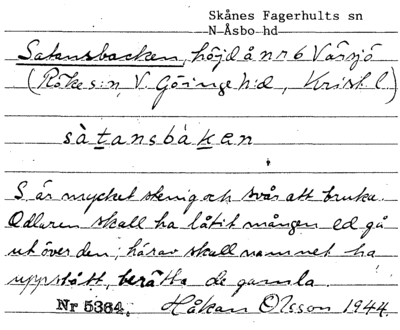 Skånes Fagerhults sn
N-Åsbo hd
Satansbacken, höjd å nr 6 Värsjö
(Röke s:n, V. Göinge h:d, Krist. l.)
sàtansbàken
S. är mycket stenig och svår att bruka.
Odlaren skall ha låtit mången ed gå
ut över den; härav skall namnet ha
uppstått, berätta de gamla.
Nr 5364. Håkan Olsson 1944.